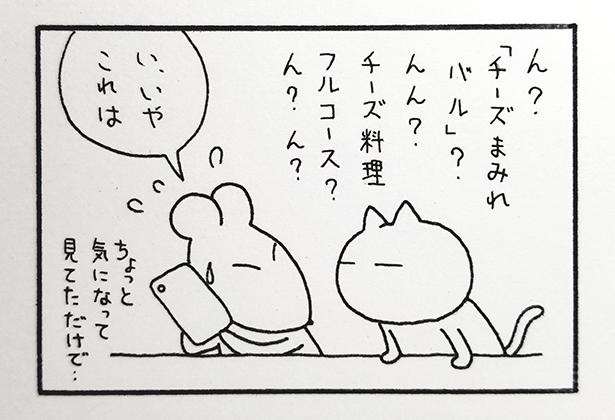 ん？
「チーズまみれ
バル」？
んん？
チーズ料理
フルコース？
ん？ん？
い、いや
これは
ちょっと
気になって
見てただけで‥